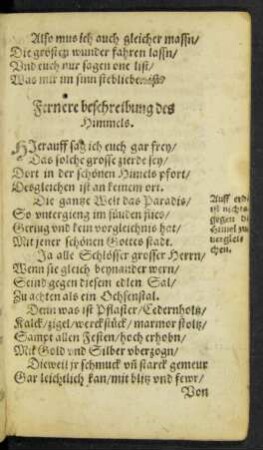 Also mus ich auch gleicher massn/
Die grösten wunder fahren lassn/
Vnd euch nur sagen one list/
Was mir im sinn
Fernere beschreibung des
Himmels.
HIerauff sag ich euch gar frey/
Das solche grosse zierde sey/
Dort in der schönen Himels pfort/
Desgleichen ist an keinem ort.
Die gantze Welt das Paradis/
So vntergieng im sünden
Gering vnd kein vorgleichnis hat/
Mit jener schönen Gottes stadt.
Ja alle Schlösser grosser Herrn/
Wenn sie gleich beynander wern/
Seind gegen diesem edlen Sal/
Zu achten als ein Ochsenstal.
Denn was ist Pflaster/Cedernholtz/
Kalck/zigel/werckstück/marmor stoltz/
Sampt allen Festen/hoch erhobn/
Mit Gold vnd Silber vberzogn/
Dieweil jr schmuck vñ starck gemeur
Gar leichtlich kan/mit blitz vnd fewr/
Von
Auff erdē
ist nichts
gegen dē
Himel zu
vergleis
chen.